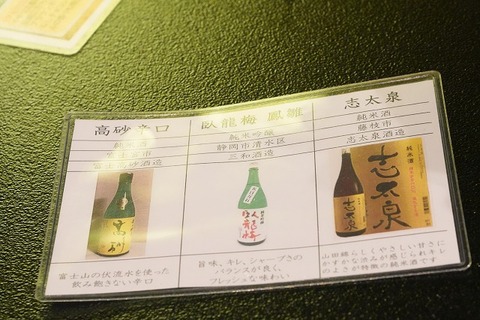 高砂辛口
富士高砂酒造
高砂
富士山の伏流水を使った
飲み飽きない辛口
臥龍梅 鳳雛
純米吟醸
静岡市清水区
三和酒造
臥龍梅
旨味、キレ、シャープさの
バランスが良く、
フレッシュな味わい
志太泉
純米酒
藤枝市
志太泉酒造
純米酒
志太泉
山田錦らしくやさしい甘さに
かすかな渋みが感じられキレ
のよさが特徴の純米酒です